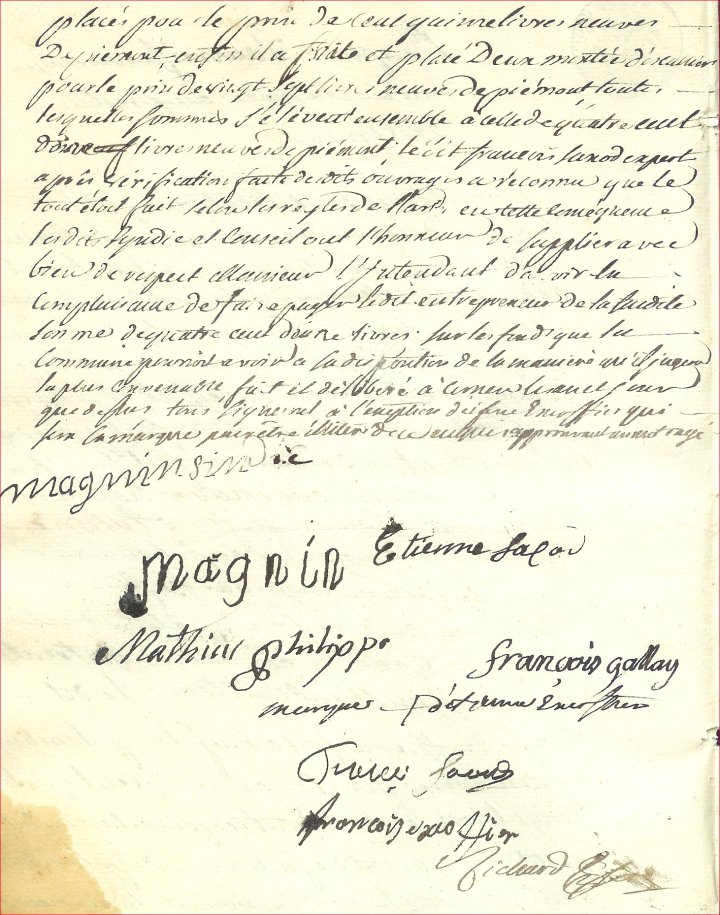 placés pour le prix de cent quinze livres neuves
De piémont, enfin il a faite et placé Deux montée d'escaliers
pour le prix de vingt sept livres neuves de piémont toutes
lesquelles sommes s'élèvent ensemble à celle de quatre cent
douze livres neuves de piémont; le dit francois Saxod expert
après vérification faite desdits ouvrages a reconnu que le
tout étoit fait selon les règles de l'art, en cette conséquence
lesdits Syndic et Conseil ont l'honneur de supplier avec
bien de respect Monsieur l'Intendant d'avoir la
Complaisance de faire payer ledit entrepreneur de la susdite
somme de quatre cent douze livres sur les fonds que la
Commune pourroit avoir a sa disposition de la manière qu'il jugera
la plus convenable, fait et délibéré à Cernex les an et jour
que dessus tous signeront à l'exception d'étienne Excoffier qui
fera sa marque pour être illitéré de ce enquis approuvant au mot
magnin sindic
magnin Etienne saxod
Mathieu philippe
françois gallay
marque d'étienne Excoffier
françois excoffier
Richard